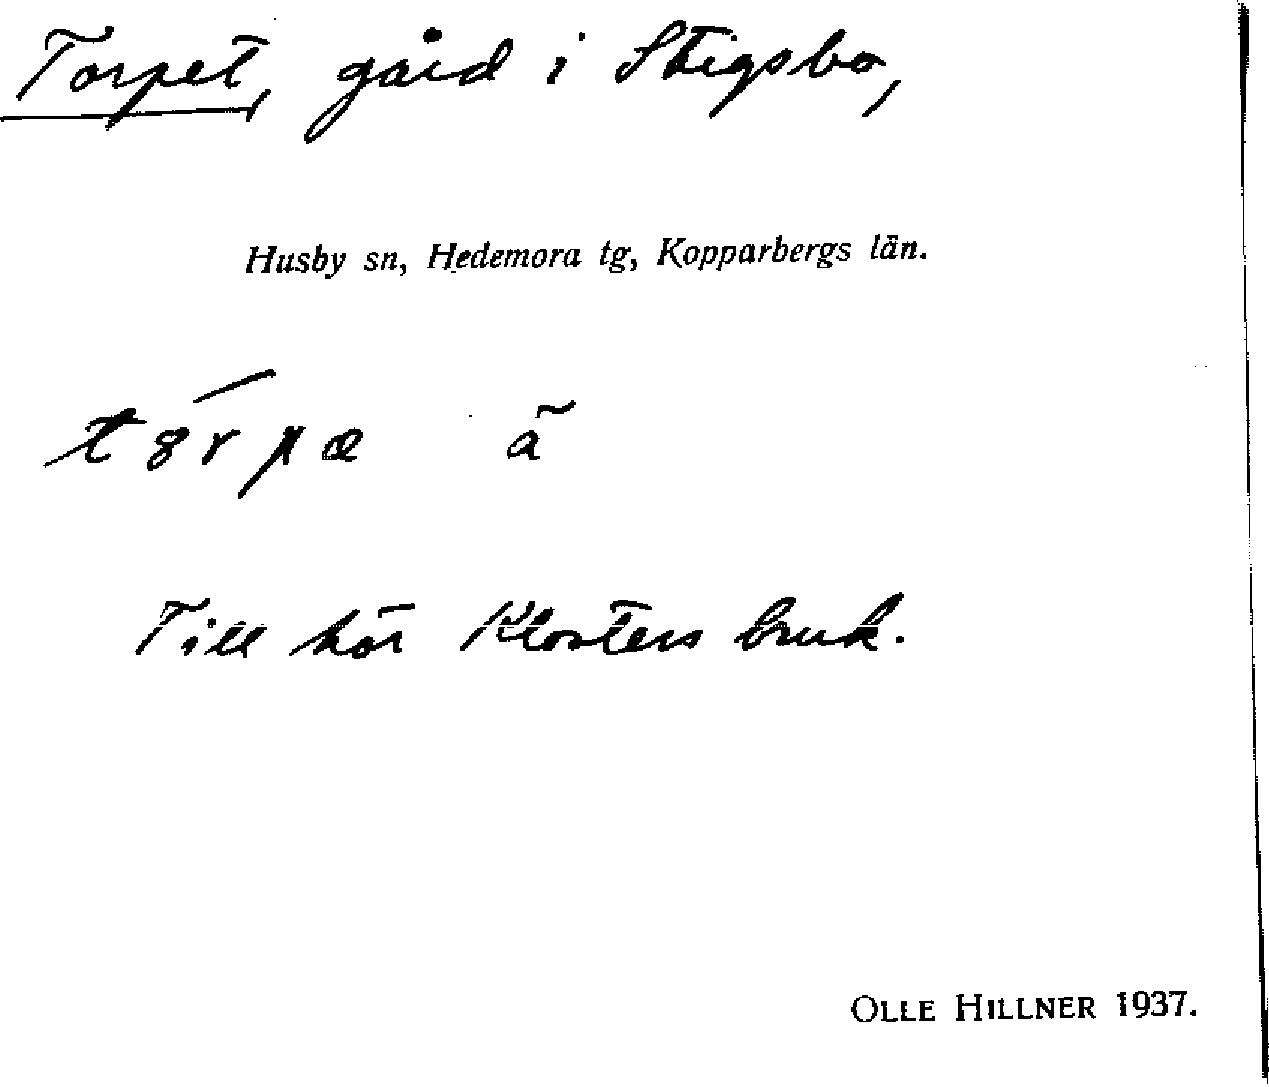 Torpet, gård i Stigsbo,
Husby sn, Hedemora tg, Kopparbergs län.
Till hör Klosters bruk.
OLLE HILLNER 1937.